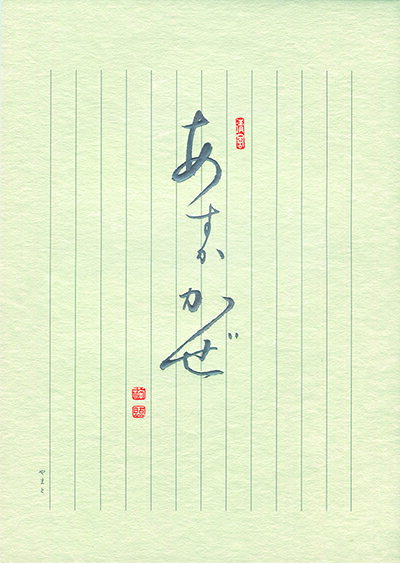 あすかかぜ
やまと